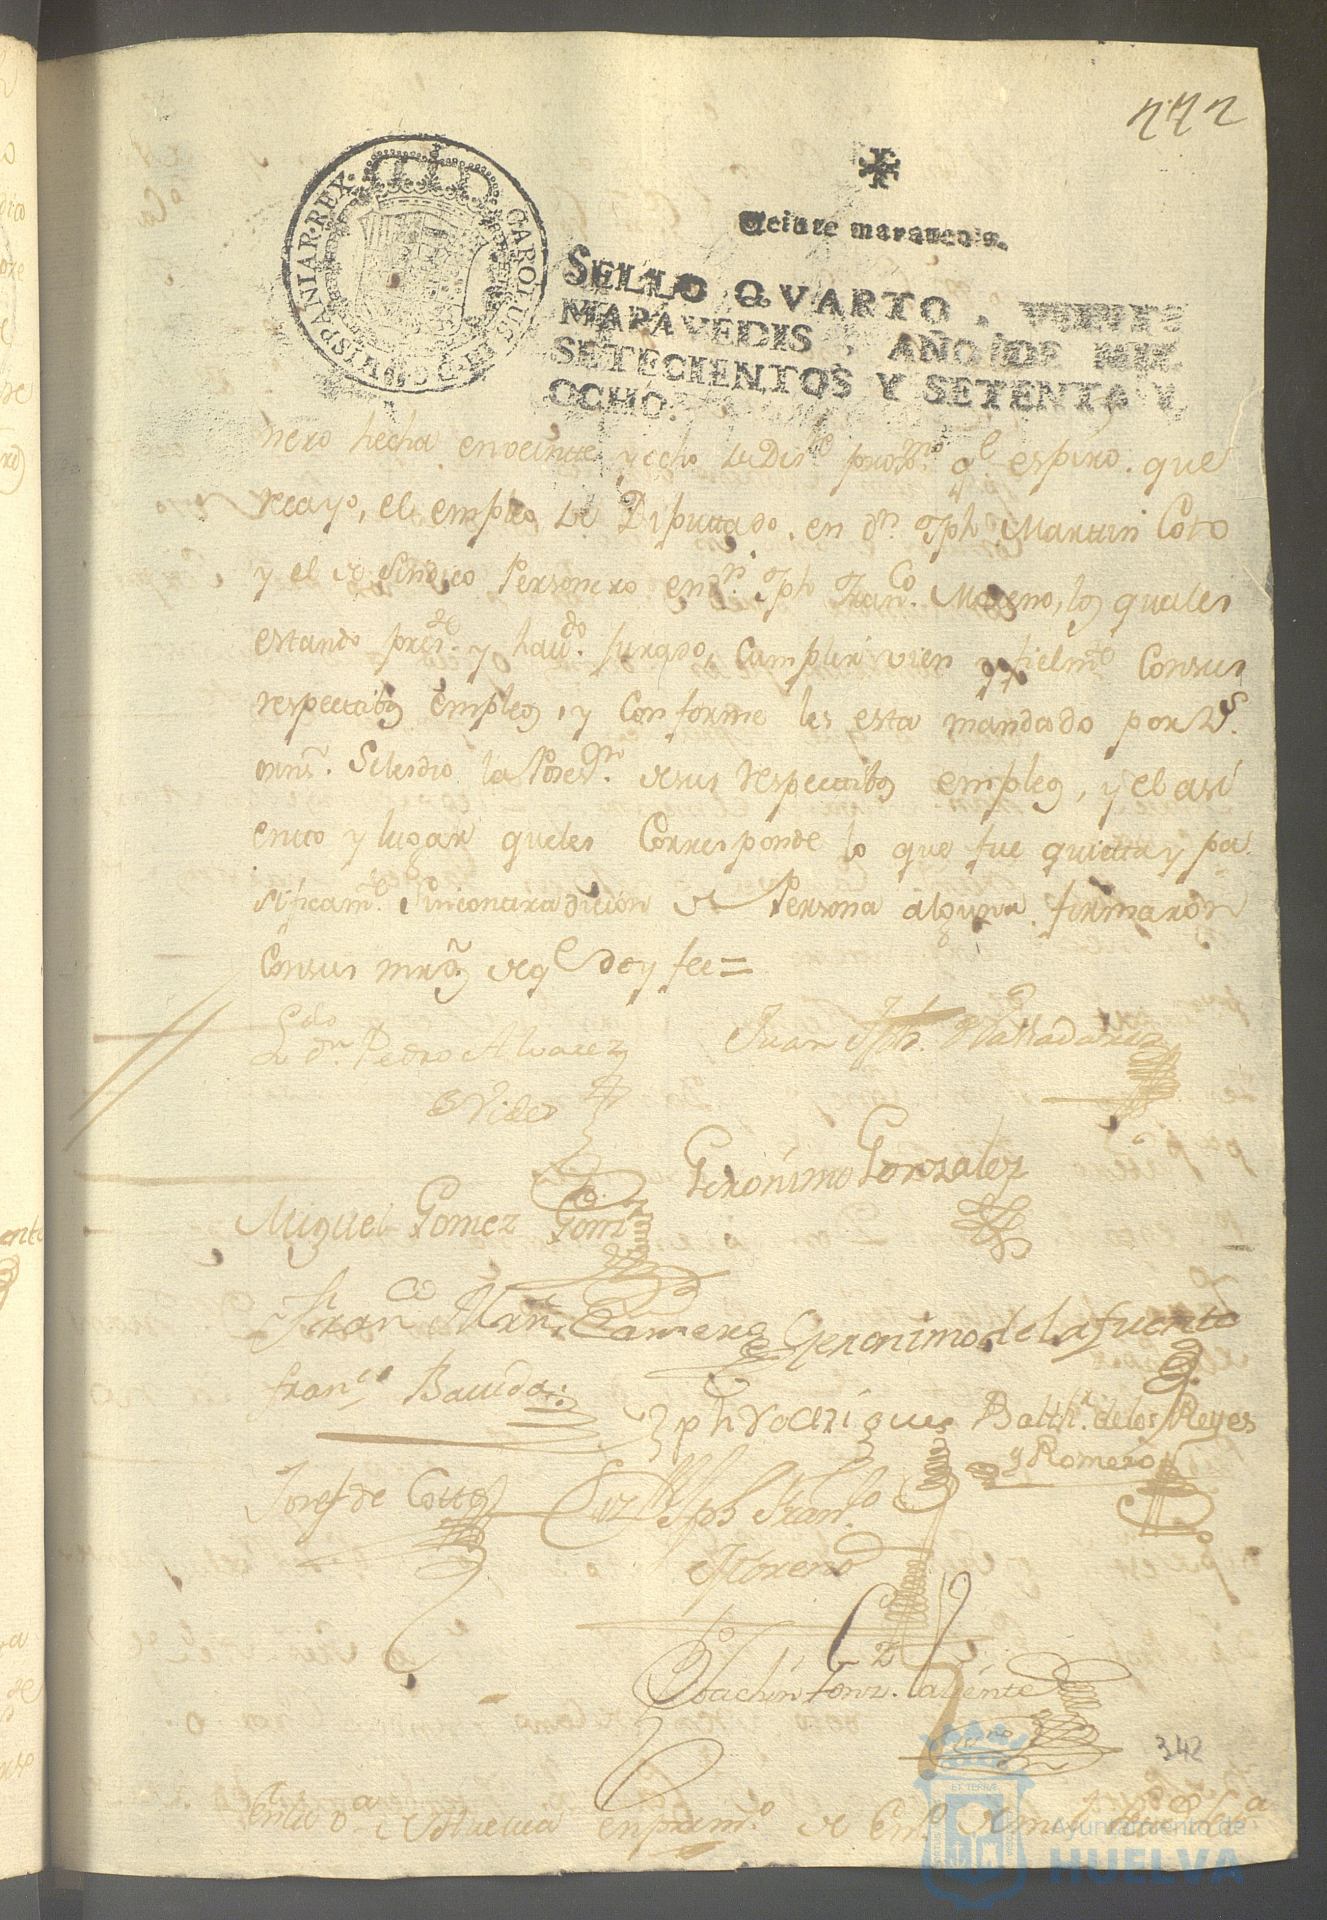 272
CAROLUS III D G HISPANIAR REX
Veinte maravedis.
SELLO QVARTO, VEINTE
MARAVEDIS, AÑO DE MIL
SETECIENTOS Y SETENTA Y
OCHO.
nero hecha enveintte y ocho de Dize. proxmo. qe. espiro. que
recayo, el empleo de Diputtado, en Dn. Jph Martin Coto
y el de Sindico Personero en Dn. Jph Franco. Moreno, los quales
estando presTes. y havdo. jurado, Cumplir vien y fielmte Consus
respecttibos empleos, y Conforme les esta mandado por Ss.
mrs. Seles dio la Poseson. desus respecttibos empleos, y el asi
entto y lugar queles Corresponde lo que fue quietta y pa
sificamte. Sin conttradicion de Persona alguna firmaron
Consus mrds. de qe doy fee =
Ldo dn. Pedro Alvarez
Juan Jph. Valladares
Geronimo Gonzalez
Miguel Gomez
Franco Martn. Camero
Geronimo de la fuente
franco Barrda.
Jph rodriguez
Balthr. de los Reyes
y Romero
Josef de Cotto
Jph Franco.
Moreno
Joachin Gonz. Caliente
342
En la Va. de Huelva en primo. de En.o de mil
Ayuntamiento de
HUELVA